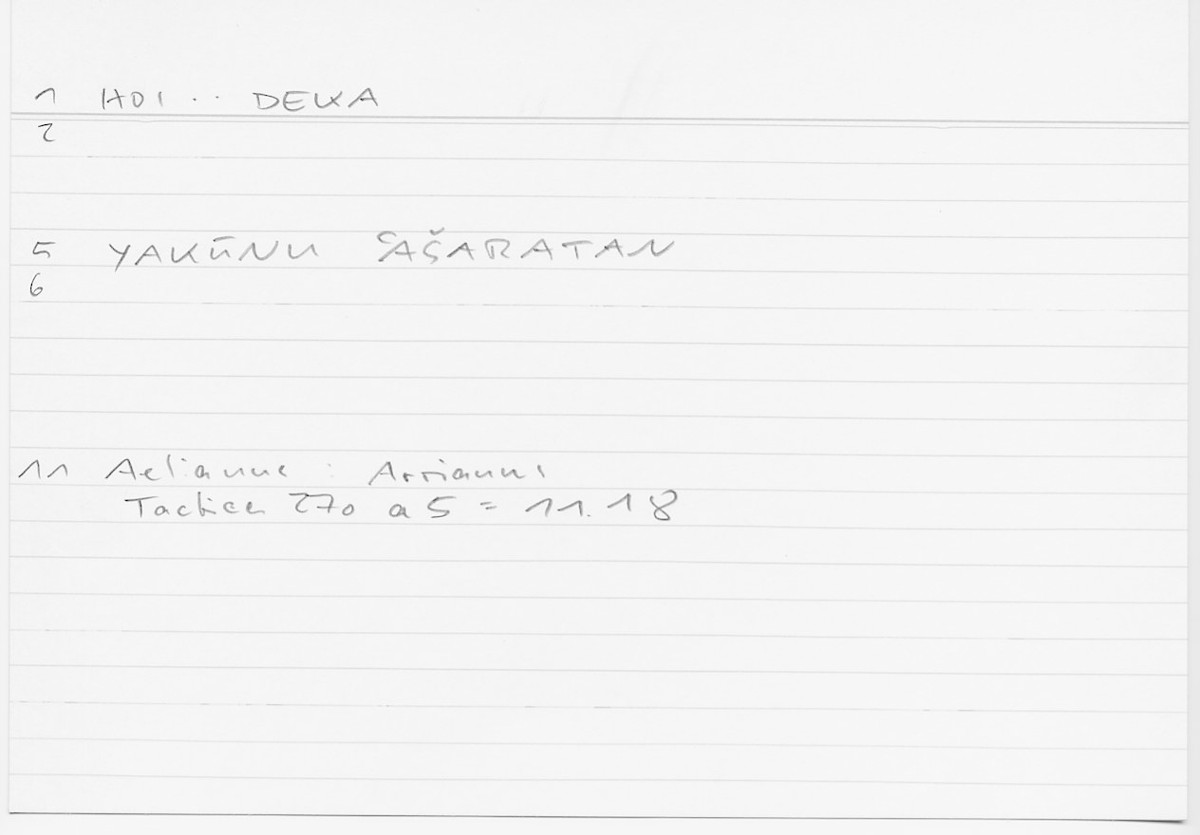 1 HOI .. DEKA
2
5 YAKŪNU ʿAŠARATAN
6
11 Aelianus : Arriani
Tactica 270 a 5 = 11.18